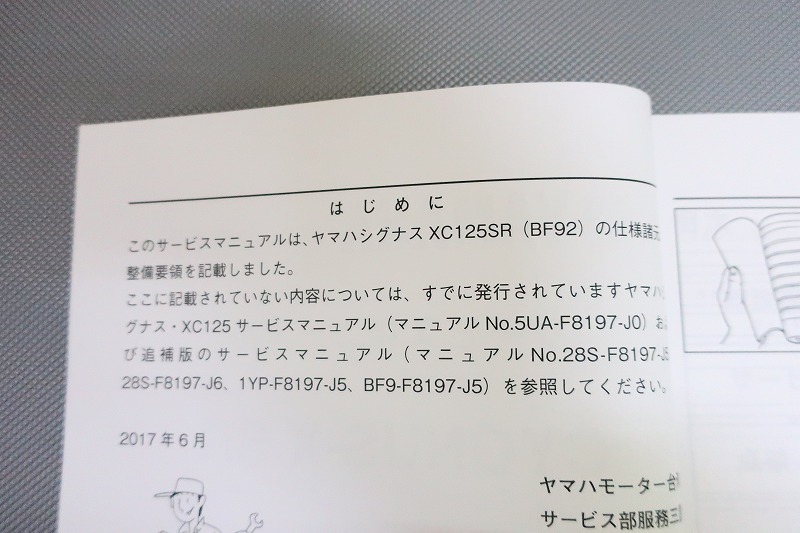 はじめに
このサービスマニュアルは、ヤマハシグナス XC125SR（BF92）の仕様諸元
整備要領を記載しました。
ここに記載されていない内容については、すでに発行されていますヤマハ
グナス・XC125 サービスマニュアル（マニュアル No.5UA-F8197-J0）お
び追補版のサービスマニュアル（マニュアル No.28S-F8197-J5
28S-F8197-J6、1YP-F8197-J5、BF9-F8197-J5）を参照してください。
2017 年 6 月
ヤマハモーター台
サービス部服務三